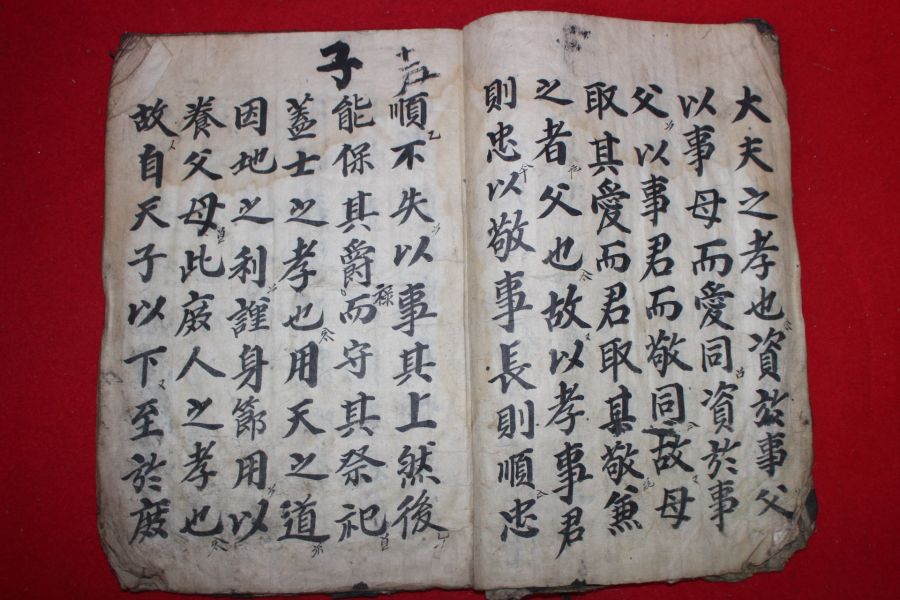 大夫之孝也資於事父
以事母而愛同資於事
父以事君而敬同故母
取其愛而君取其敬兼
之者父也故以孝事君
則忠以敬事長則順忠
順不失以事其上然後
子
能保其爵祿而守其祭祀
蓋士之孝也用天之道
因地之利謹身節用以
養父母此庶人之孝也
故自天子以下至於庶